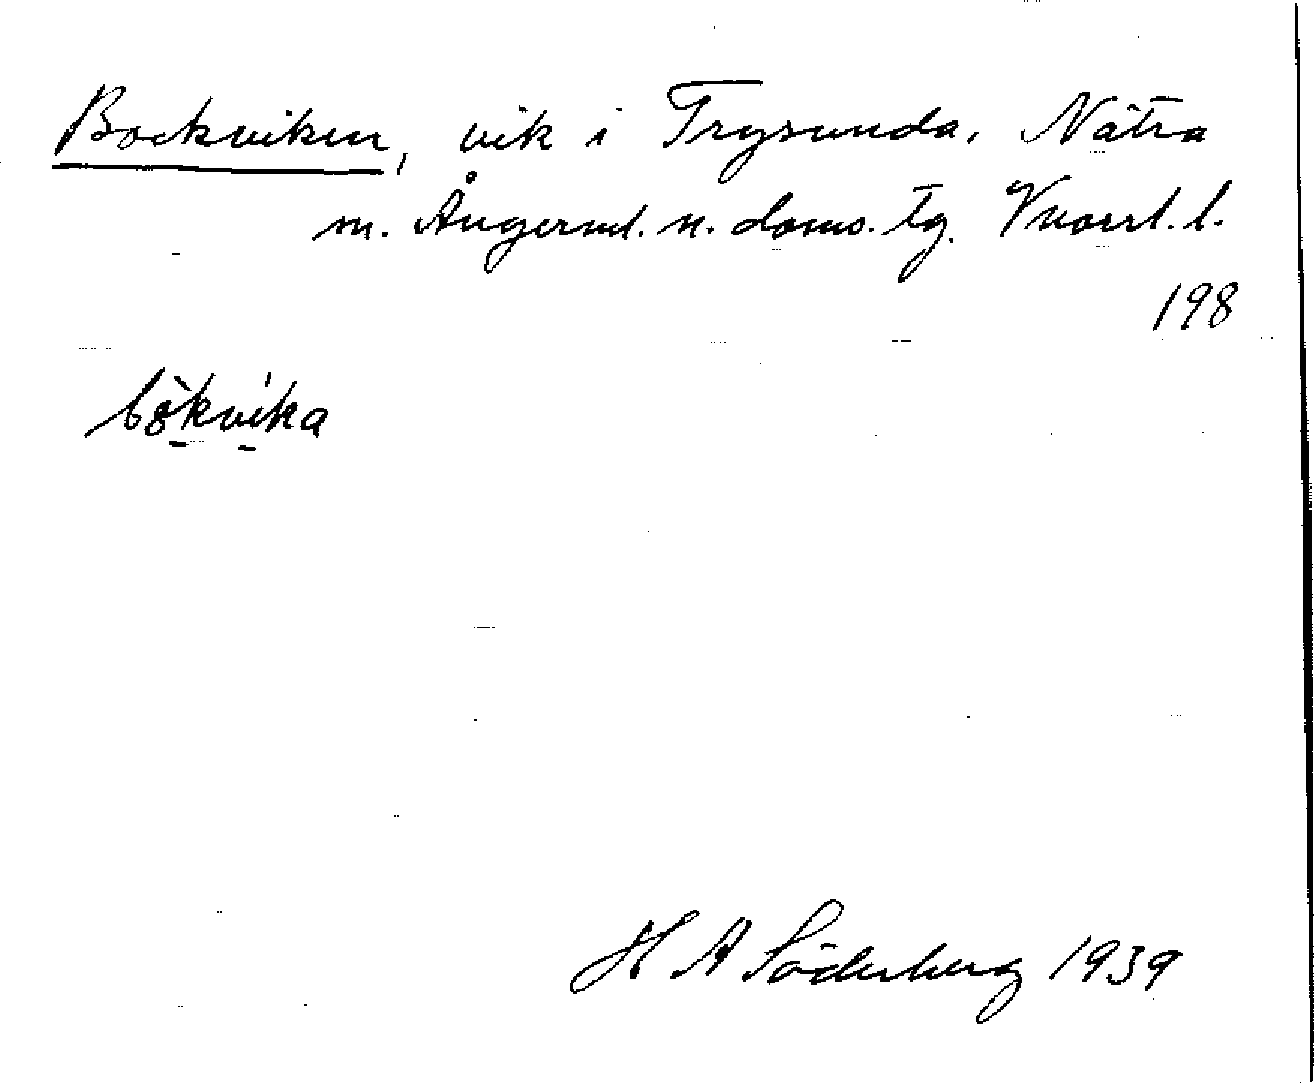 Bockviken, vik i Trysunda, Nätra
m. Ångerml. n. doms. tg. Vnorrl. l.
198
bòkvika
H A Söderberg 1939